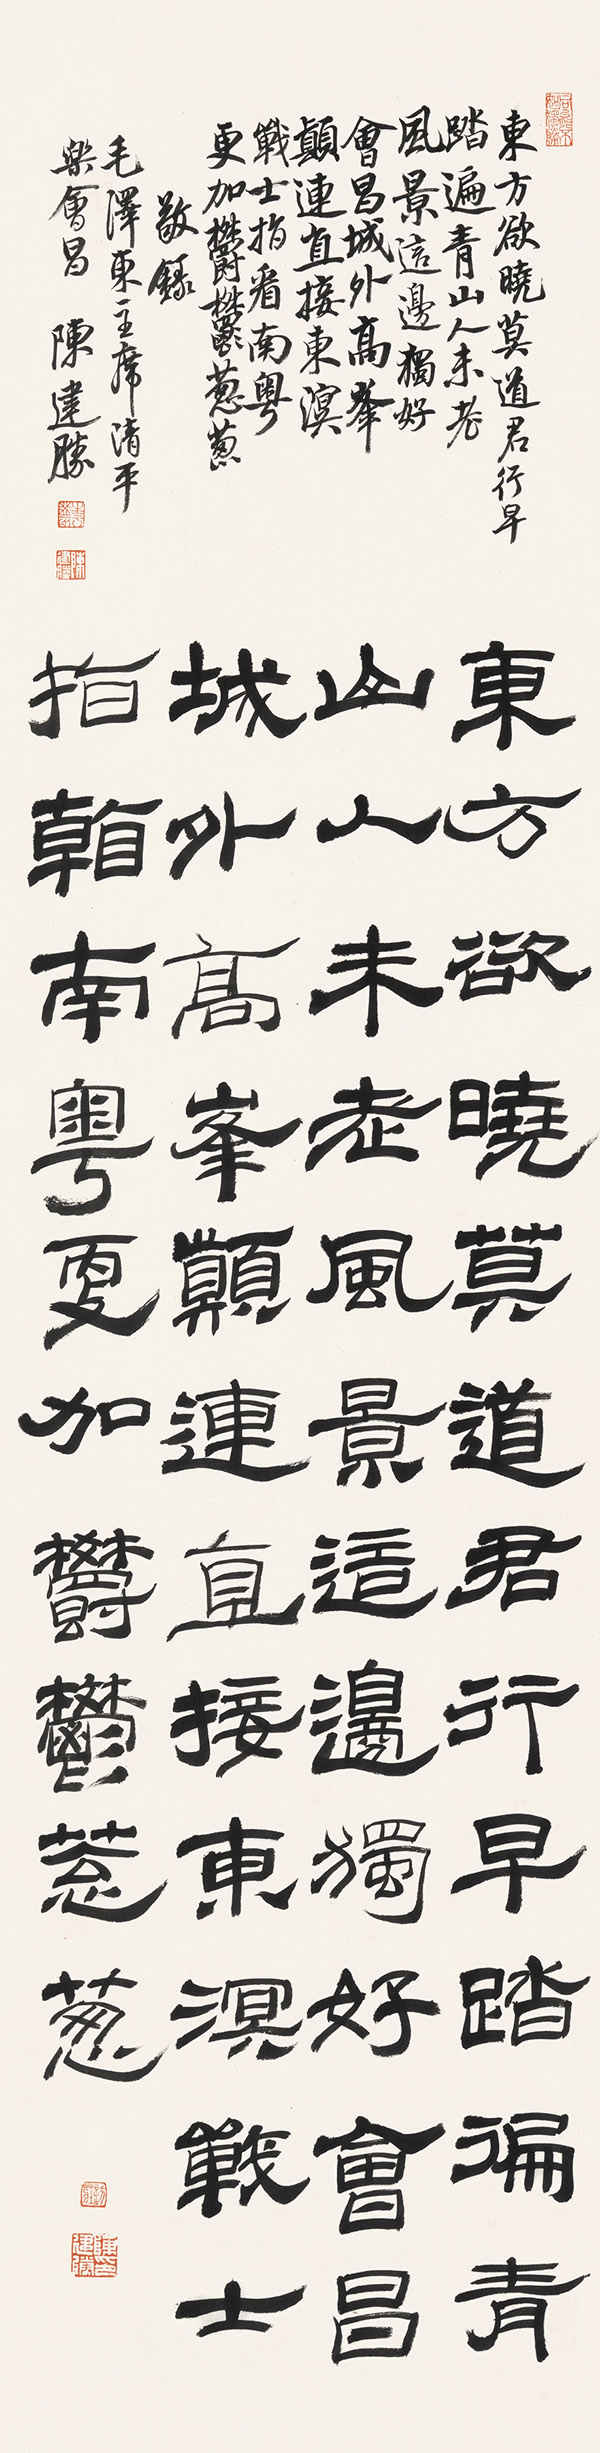 東方欲曉莫道君行早
踏遍青山人未老
風景這邊獨好
會昌城外高峯
顛連直接東溟
戰士指看南粵
更加鬱鬱蔥蔥
敬錄
毛澤東主席清平
樂會昌 陳建勝
東方欲曉莫道君行早踏徧青
山人未老風景這邊獨好會昌
城外高峯顛連直接東溟戰士
指看南粵更加鬱鬱蔥蔥